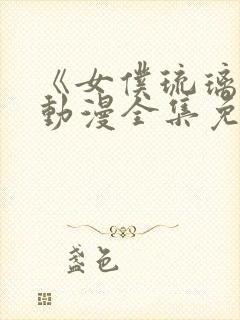 《女僕琉璃
動漫全集免
盞色